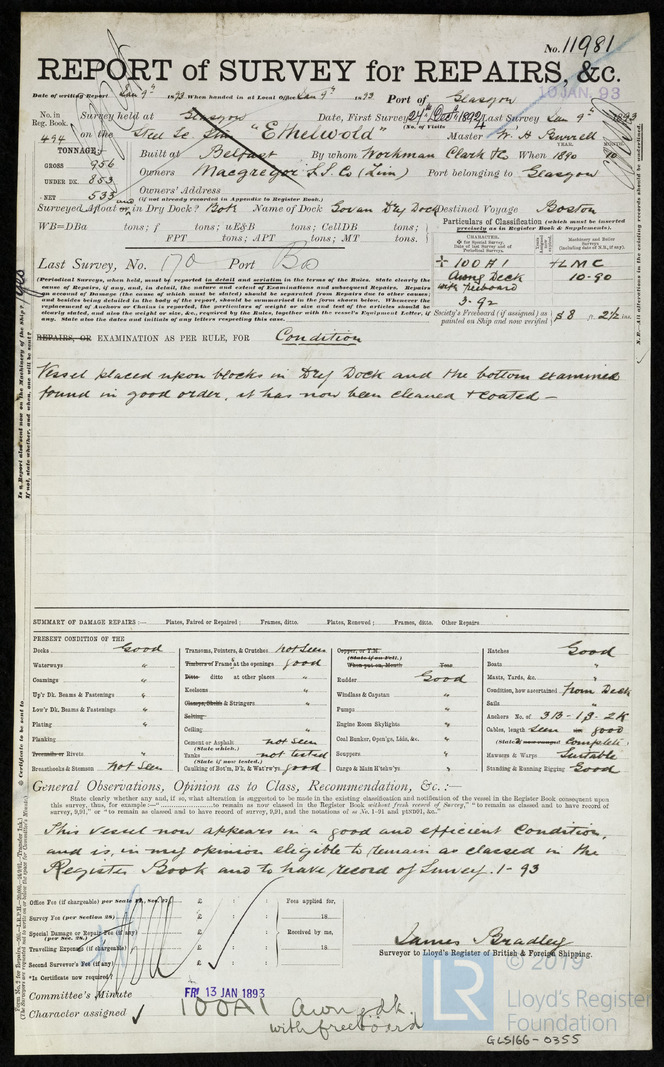 No. 11981
REPORT of SURVEY for REPAIRS, &c.
Date of writing Report Jan 9th 1893 When handed in at Local Office Jan 9th 1893 Port of Glasgow
10 JAN. 93
No. in Reg. Book. Survey held at Glasgow Date, First Survey 24th Decr 1892 Last Survey Jan 9th 1893
(No. of Visits 4
494 on the Steel Sc. Str "Ethelwold" Master W. H.
TONNAGE:
GROSS 956 Built at Belfast By whom Workman Clark & Co When 1890 10
YEAR. MONTH.
UNDER DK. 853 Owners Macgregor S.S. Co (Lim) Port belonging to Glasgow
NET 533 Owners' Address
(if not already recorded in Appendix to Register Book.)
Surveyed Afloat and or in Dry Dock? Both Name of Dock Govan Dry Dock Destined Voyage Boston
WB=DBa tons; f tons; uE&B tons; CellDB tons.
FPT tons; APT tons; MT tons.
Particulars of Classification (which must be inserted precisely as in Register Book & Supplements).
CHARACTER.
Machinery and Boiler Surveys
Last Survey, No. 170 Port
100 A1 LMC
Awng Deck 10-90
with freeboard
3-92
(Periodical Surveys, when held, must be reported in detail and seriatim in terms of the Rules. State clearly the
cause of Repairs, if any, and, in detail, the nature and extent of Examinations and subsequent Repairs. Repairs
on account of Damage (the cause of which must be stated) should be separated from Repairs due to other causes;
and besides being detailed in the body of the report, should be summarised in the form shown below. Whenever the
replacement of Anchors or Chains is reported, the particulars of weight or size and test of the articles should be
clearly stated, and also the weight or size, &c., required by the Rules, together with the vessel's Equipment Letter, if
any. State also the dates and initials of any letters respecting this case.
Society's Freeboard (if assigned) as painted on Ship and now verified 8 ft. 2½ ins.
REPAIRS, OR EXAMINATION AS PER RULE, FOR Condition
Vessel placed upon blocks in Dry Dock and the bottom examined
found in good order, it has now been cleaned & coated —
SUMMARY OF DAMAGE REPAIRS :— Plates, Faired or Repaired ; Frames, ditto. Plates, Renewed ; Frames, ditto. Other Repairs
PRESENT CONDITION OF THE
Decks Good
Waterways "
Coamings "
Up'r Dk. Beams & Fastenings "
Low'r Dk. Beams & Fastenings "
Plating "
Planking
Treenails or Rivets "
Breasthooks & Stemson Not Seen
Transoms, Pointers, & Crutches Not Seen
Timbers of Frames at the openings good
Ditto ditto at other places "
Keelsons "
Clamps, Shelfs & Stringers "
Salting
Ceiling "
Cement or Asphalt not Seen
(State which.)
Tanks not tested
(State if now tested.)
Caulking of Bot'm, D'k, & Wat'rw'ys good
Copper, or Y.M.
(State if on Felt.)
When put on, Month Year
Rudder Good
Windlass & Capstan "
Pumps "
Engine Room Skylights "
Coal Bunker, Open'gs, Lids, &c. "
Scuppers "
Cargo & Main H'tchw'ys "
Hatches Good
Boats "
Masts, Yards, &c. "
Condition, how ascertained from Deck
Sails "
Anchors No. of 3B-1S-2K
Cables, length Seen good
Complete
Hawsers & Warps Suitable
Standing & Running Rigging Good
General Observations, Opinion as to Class, Recommendation, &c. :—
State clearly whether any, and if so, what alteration is suggested to be made in the existing classification and notification of the vessel in the Register Book consequent upon
this survey, thus, for example:—
This vessel now appears in a good and efficient Condition,
and is, in my opinion eligible to remain as classed in the
Register Book and to have record of Survey. 1-93
Office Fee (if chargeable) per Scale £ : :
Survey Fee (per Section 28) £ : :
Special Damage or Repair Fee (if any) £ : :
(per Sec. 28.)
Travelling Expenses (if chargeable) £ : :
Second Surveyor's Fee (if any) £ : :
*Is Certificate now required?
Fees applied for,
18
Received by me,
18
James Bradley
Surveyor to Lloyd's Register of British & Foreign Shipping.
Committee's Minute FRI 13 JAN 1893
Character assigned 100A1 Awng dk
with freeboard
© 2019
LR Lloyd's Register Foundation
GLS166-0355